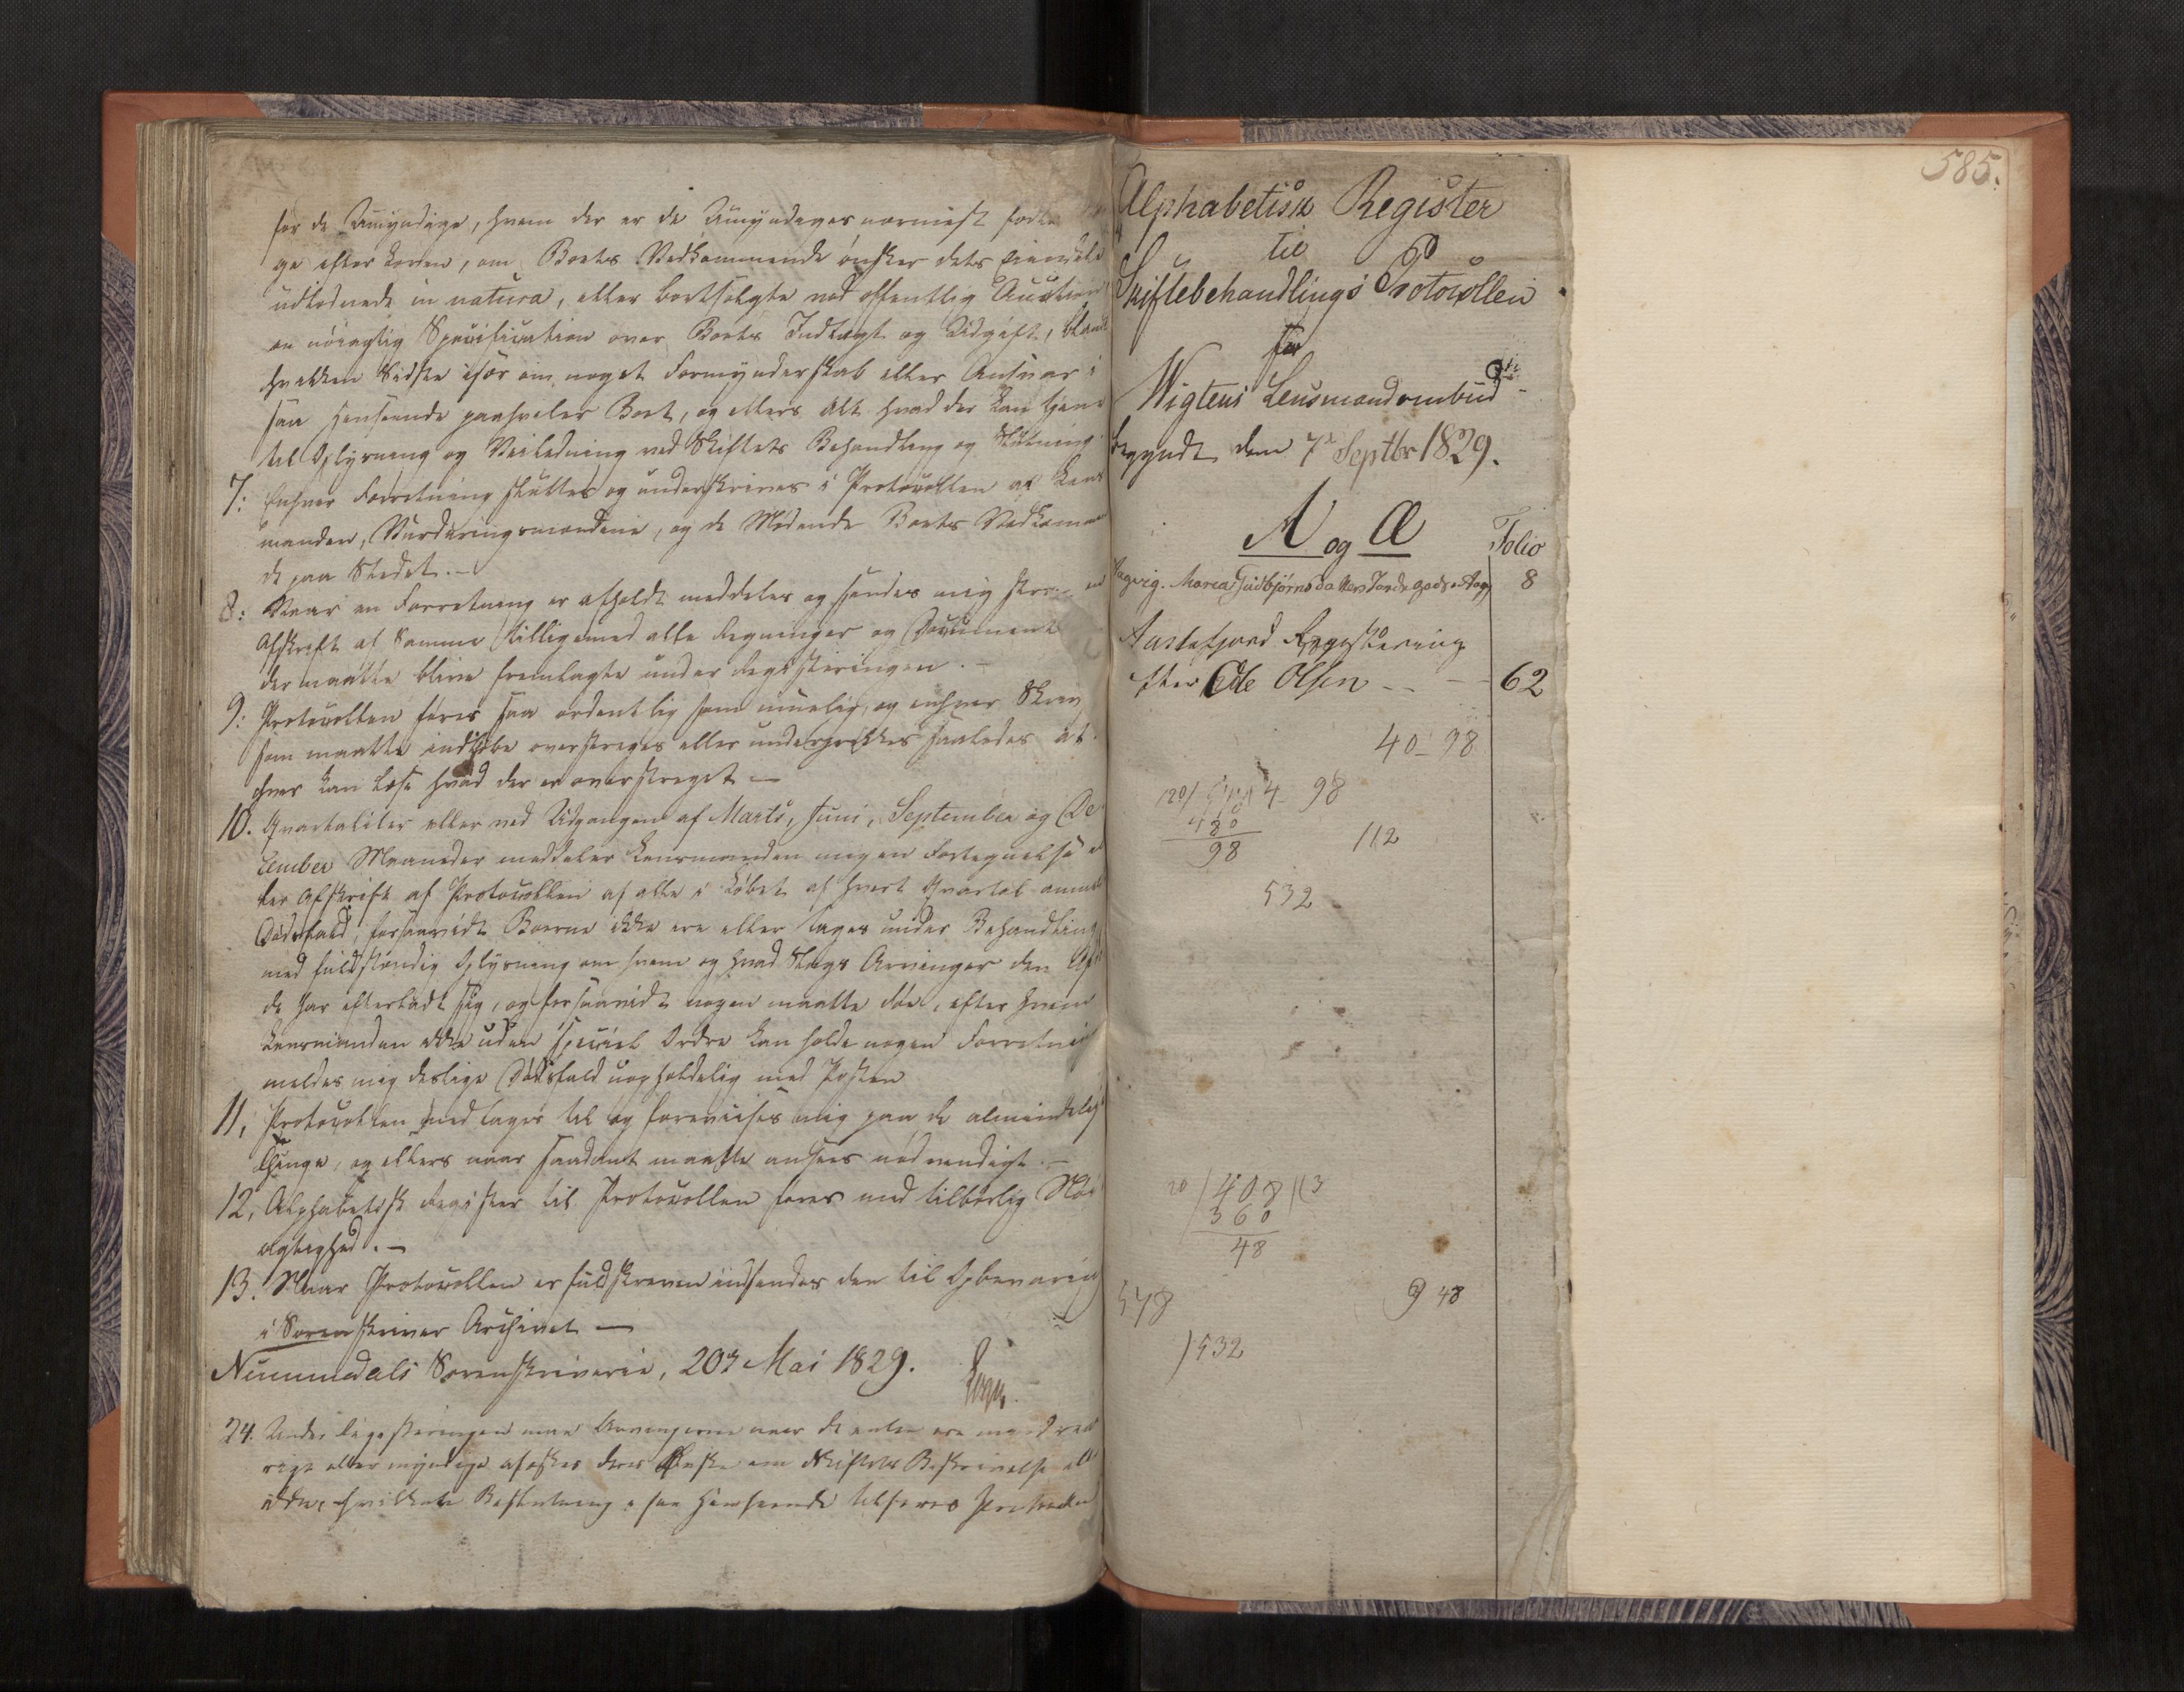 for de Umyndige, hvem der er de Umyndiges nærmest fød
ge efter Loven, om Boets Vedkommende ønsker dets Eiendele
udloddede in natura, eller bortsolgte ved offentlig Auction
en nøiagtig Specification over Boets Indtægt og Udgift, blandt
hvilken Sidste især om noget Formynderskab eller Ansvar i
saa Henseende paahviler Boet, og ellers Alt hvad der kan tjene
til Oplysning og Veiledning ved Skiftets Behandling og Slutning
7: Enhver Forretning sluttes og underskrives i Protocollen af Lens
manden, Vurderingsmændene, og de Mødende Boets Vedkommen
de paa Stedet. –
8: Naar en Forretning er afholdt meddeles og sendes mig en
Afskrift af Samme tilligemed alle Regninger og Document
der maatte blive fremlagte under Registeringen. –
9: Protocollen føres saa ordentlig som muelig, og enhver Skriv
som maatte indløbe overstreges eller underprikkes saaledes at
hver kan læse hvad der er overstreget –
10. Qvartaliter eller ved Udgangen af Marts, Juni, September og De
cember Maaneder meddeler Lensmanden mig en Fortegnelse el
ler Afskrift af Protocollen af alle i Løbet af hvert Qvartal anmeldte
Dødsfald, forsaavidt Boerne ikke ere eller tages under Behandling
med fuldstændig Oplysning om hvem og hvad Slags Arvinger den Af
de har efterladt sig, og forsaavidt nogen maatte døe, efter hvem
Lensmanden ikke uden speciel Ordre kan holde nogen Forretning
meldes mig deslige Dødsfald uopholdelig med Posten
11, Protocollen medtages til og foreviises mig paa de almindelige
Thinge, og ellers naar saadant maatte ansees nødvendigt. –
12, Alphabetisk Register til Protocollen føres med tilbørlig Nøi
agtighed. –
13. Naar Protocollen er fuldskreven indsendes den til Opbevaring
i Sorenskriver Archivet –
Nummedals Sorenskriverie, 20de Mai 1829.
24. Under Registeringen maa Arvingerne naar de enten ere
rige eller myndige afæskes deres Ønske om Skiftets Beskrivelse ell
ikke, hvilken Beslutning i saa Henseende tilføres Protocollen
585.
Alphabetisk Register
til
Skiftebehandlings Protocollen
for
Wigtens Lensmandombud
begyndt den 7de Septbr 1829.
A og Æ
Folio
Maria Gudbjørnsda 8
Austafjord Registering
efter Ole Olsen – – 62
40 – 98
120/ 4 – 98
480
98
112
532
20 / 408 / (3
360
48
548
9 48
) 532